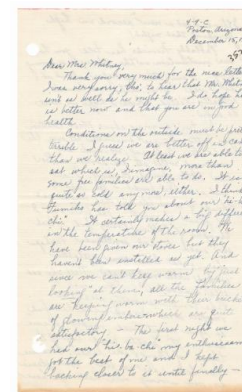 4-9-C
Poston, Arizona
December 15, 1
Dear Mrs. Whitney,
Thank you very much for the nice letter.
I was very sorry, to hear that Mr. Whitney
isn't as well as he might be. I do hope he
is better now and that you are in good
health.
Conditions on the outside must be
I guess we are better off in camp
than we realize. At least we are able to
eat what is, I imagine, more than
some free families are able to do. It
quite as cold any more, either. I think
Fumiko has told you about our "hi-ba-
chi." It certainly makes a big difference
in the temperature of the room. We
have been given our stoves but they
haven't been installed as yet. And
since we can't keep warm by just
"looking" at them, all the families
are keeping warm with their buckets
of glowing embers which are quite
satisfactory — The first night we
had our "hi-ba-chi" my enthusiasm
got the best of me and I kept
backing closer to it until finally —